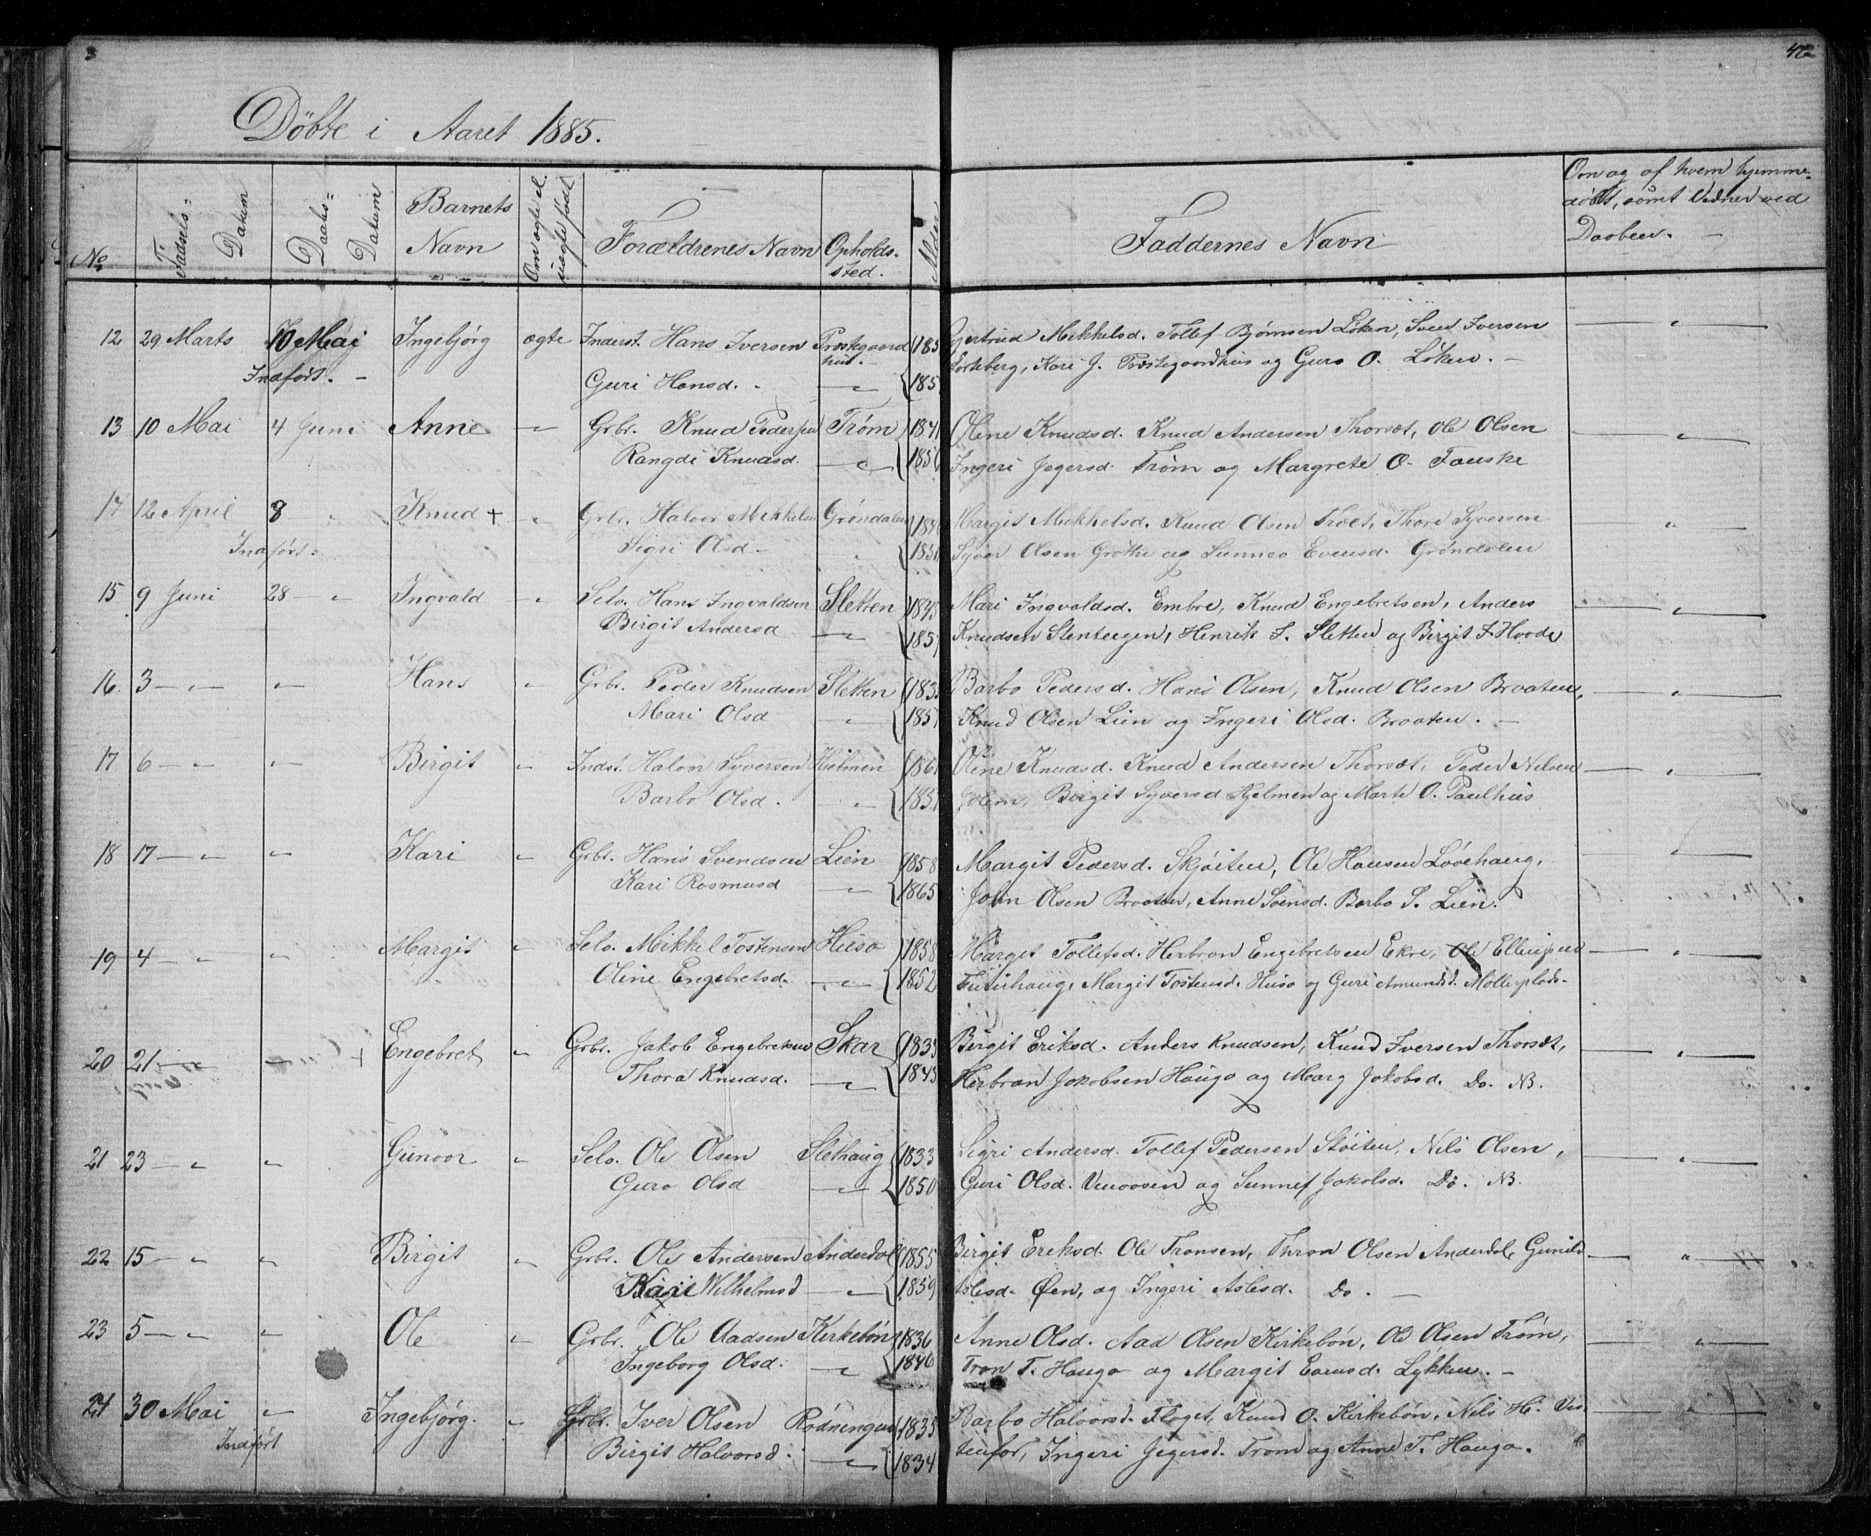 3
42
Döbte i Aaret 1885.
No
Födsels=
Datum
Daabs=
Datum
Barnets
Navn
Om ægte el.
uægte født
Forældrenes Navn
Opholds-
sted.
Alder
Faddernes Navn
Om og af hvem hjemme-
døbt, samt Vidner ved
Daaben.
12 29 Marts 10 Mai Ingebjörg ægte Inderst. Hans Iversen Præstegaard 185 Gjertrud Mikkelsd. Tollef Bjørnsen Løken, Sven Iversen
Indført. Guri Hansd. 185 Sorteberg, Kari J. Præstegaardhus og Guro O. Løken.
13 10 Mai 4 Juni Anne Grbr. Knud Pedersen Trøm 1841 Oline Knudsd. Knud Andersen Thorset, Ole Olsen
Rangdi Knudsd. 1856 Ingeri Jegersd. Trøm og Margrete O. Fauske
14 12 April 8 Knud + Grbr. Halvor Mikkelsen Grøndalen 184 Margit Mikkelsd. Knud Olsen Troet, Thore Syversen
Indført: Sigri Olsd. 185 Syver Olsen Grøthe og Sunneva Evensd. Grøndalen
15 9 Juni 28 Ingvald Selv. Hans Ingvaldsen Sletten 1845 Mari Ingvaldsd. Embre, Knud Engebretsen, Anders
Birgit Andersd 185 Knudsen Stenbergen, Henrik I. Sletten og Birgit I. Hovde
16. 3 Hans Grbr. Peder Knudsen Sletten 183 Barbo Pedersd. Hans Olsen, Knud Olsen Braaten,
Mari Olsd 185 Knud Olsen Lien og Ingeri Olsd. Braaten.
17 6 Birgit Indst. Halvor Syversen Hjelmen 186 Oline Knudsd. Knud Andersen Thorset, Peder Nilsen
Barbo Olsd. 185 Holem, Birgit Syversd Hjelmen og Marte O. Paulhus
18 17 Kari Grbr. Hans Svendsen Lien 1858 Margit Pedersd. Skøiten, Ole Hansen Løvehaug,
Kari Rasmusd 1865 John Olsen Braaten, Anne Svensd. Barbo S. Lien.
19 4 Margit Selv. Mikkel Tostensen Huso 1858 Marget Tollefsd. Herbran Engebretsen Ekre, Ole Ellingsen
Oline Engebretsd. 1852 Furuhaug, Margit Tostensd. Huso og Guri Amundsd. Mølleplads.
20 21 + Engebret Grbr. Jakob Engebretsen Skar 1835 Birgit Eriksd. Anders Knudsen, Knud Iversen Thorset,
Thora Knudsd. 1843 Herbran Jakobsen Haugo og Marg Jakobsd. Do. NB.
21 23 Gunvor Selv. Ole Olsen Slethaug 1833 Sigri Andersd. Tollef Pedersen Skøiten, Nils Olsen,
Guro Olsd 1850 Guri Olsd. Venoosen og Sunnef Jakobsd. Do. NB.
22 15 Birgit Grbr. Ole Andersen Anderdal 1855 Birgit Eriksd. Ole Tronsen, Thron Olsen Anderdal, Gunild
Kari Wilhelmsd 1859 Aslesd. Øen, og Ingeri Aslesd. Do.
23 5 Ole Grbr. Ole Aadsen Kirkebøn 1836 Anne Olsd. Aad Olsen Kirkebøn, Ole Olsen Trøm,
Ingeborg Olsd. 1846 Tron T. Haugo og Margit Evensd. Løkken.
24 30 Mai Ingebjørg. Grbr. Iver Olsen Rødningen 1835 Barbo Halvorsd. Floget, Knud O. Kirkebøn, Nils H. Ves
Indført Birgit Halvorsd. 1834 tenfor, Ingeri Jegersd. Trøm og Anne T. Haugo.